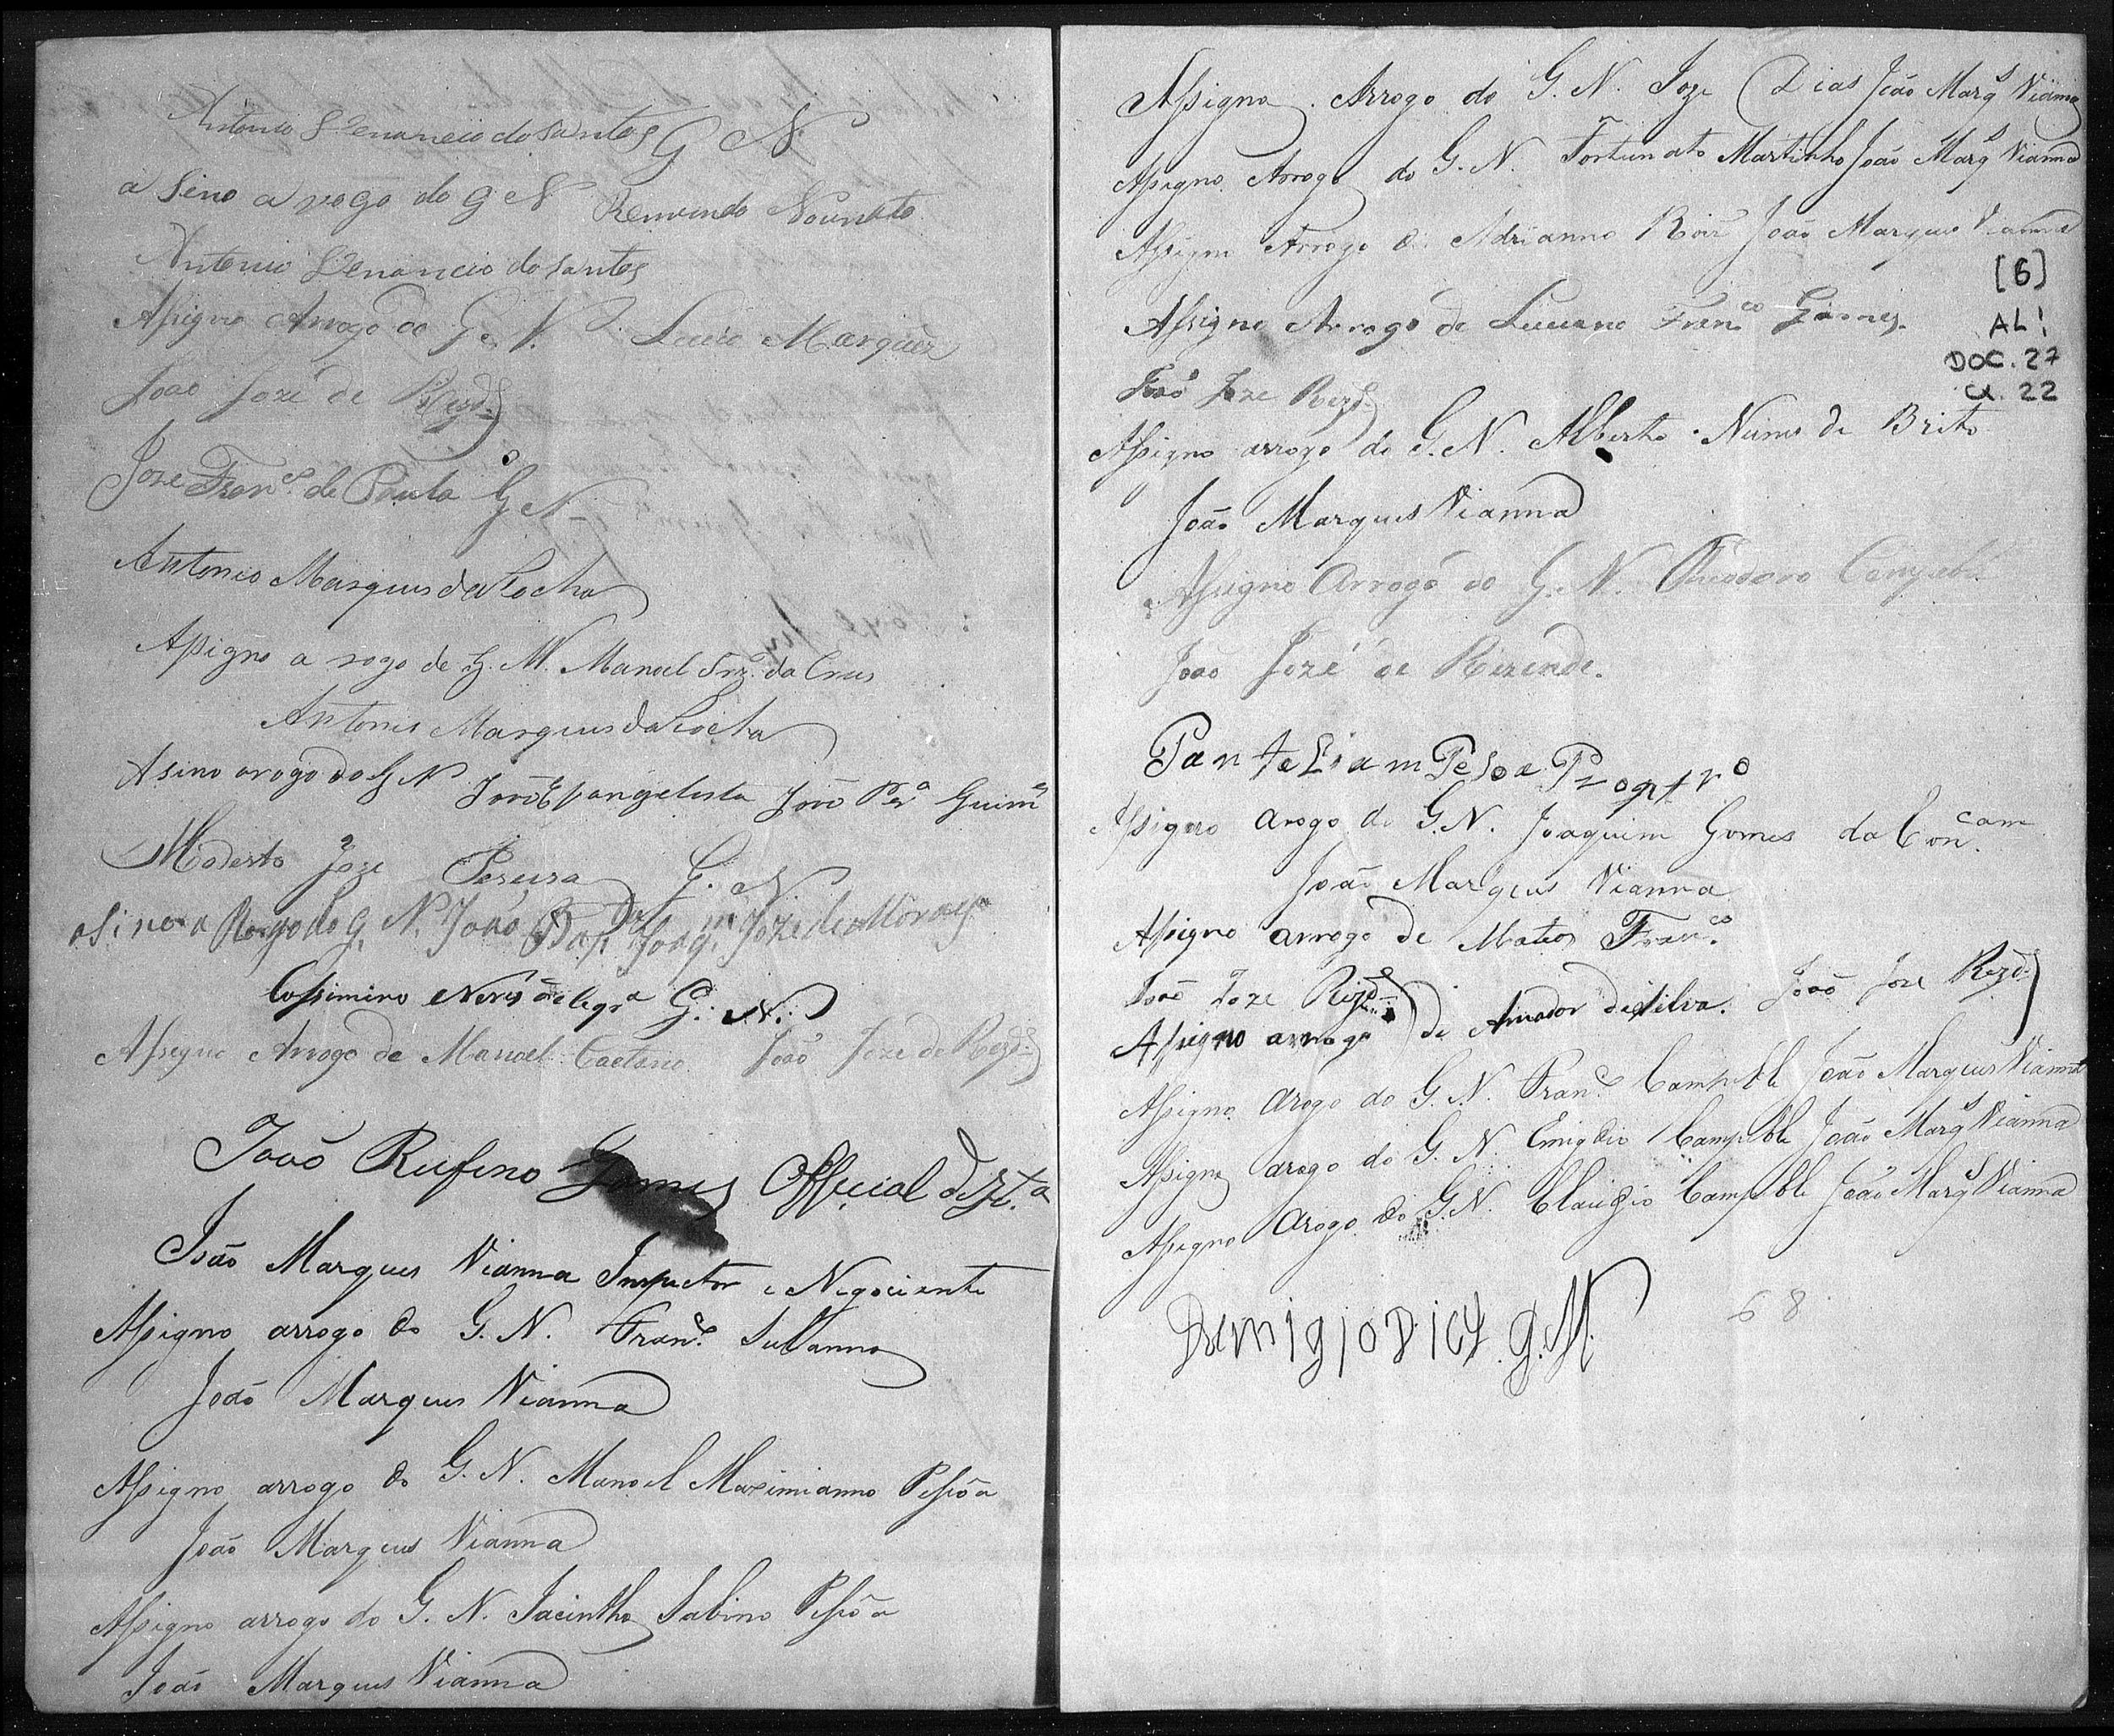 Antonio Venancio do santos G N
a sino a rogo do G N Remundo Nounato
Antonio Venancio do santos
Assigno Arrogo do G. N. Lucio Marques
João Joze de Rezde
Joze Franco de Paula G N
Antonio Marques da Rocha
Assigno a rogo de G. N. Manoel Frz da Crus
Antonio Marques da Rocha
Asino arogo do G N João Evangelista João Pera Guimes
Modesto Joze Pereira G. N
asino a Rogo do G. N. João Bapta Joaqm Joze de Moraes
Cassimiro Neris G. N.
Assigno Arrogo de Manoel Caetano João Joze de Rezde
João Rufino Gomes Official de Justa
João Marques Vianna Inspector e Negociante
Assigno arrogo do G. N. Franco SuVanno
João Marques Vianna
Assigno arrogo do G. N. Manoel Maximianno Pessôa
João Marques Vianna
Assigno arrogo do G. N. Jacintho Sabino Pessôa
João Marques Vianna
Assigno Arrogo do G. N. Joze Dias João Marqs Vianna
Assigno Arrogo do G. N. Fortunato Martinho João Marqs Vianna
Assigno Arrogo de Adrianno João Marques Vianna
[6]
AL!
DOC. 27
Cx. 22
Assigno Arrogo de Luciano Franco Gomes.
João Joze Rezde
Assigno arrogo do G. N. Alberto Nunes de Brito
João Marques Vianna
Assigno Arrogo do G. N. Theodoro
João Jozé de Rezende.
PanteLiam Pesoa
Assigno arogo do G. N. Joaquim Gomes da Concam
João Marques Vianna
Assigno arrogo de Mateos Franco
João Joze Rezde
Assigno arrogo de Amador da silva. João Joze Rezde
Assigno arogo do G. N. Franco Campêlle João Marques Vianna
Assigno arogo do G. N. Emigdio Campêlle João Marqs Vianna
Assigno arogo do G. N. Claudio Campêlle João Marqs Vianna
G. N.
68